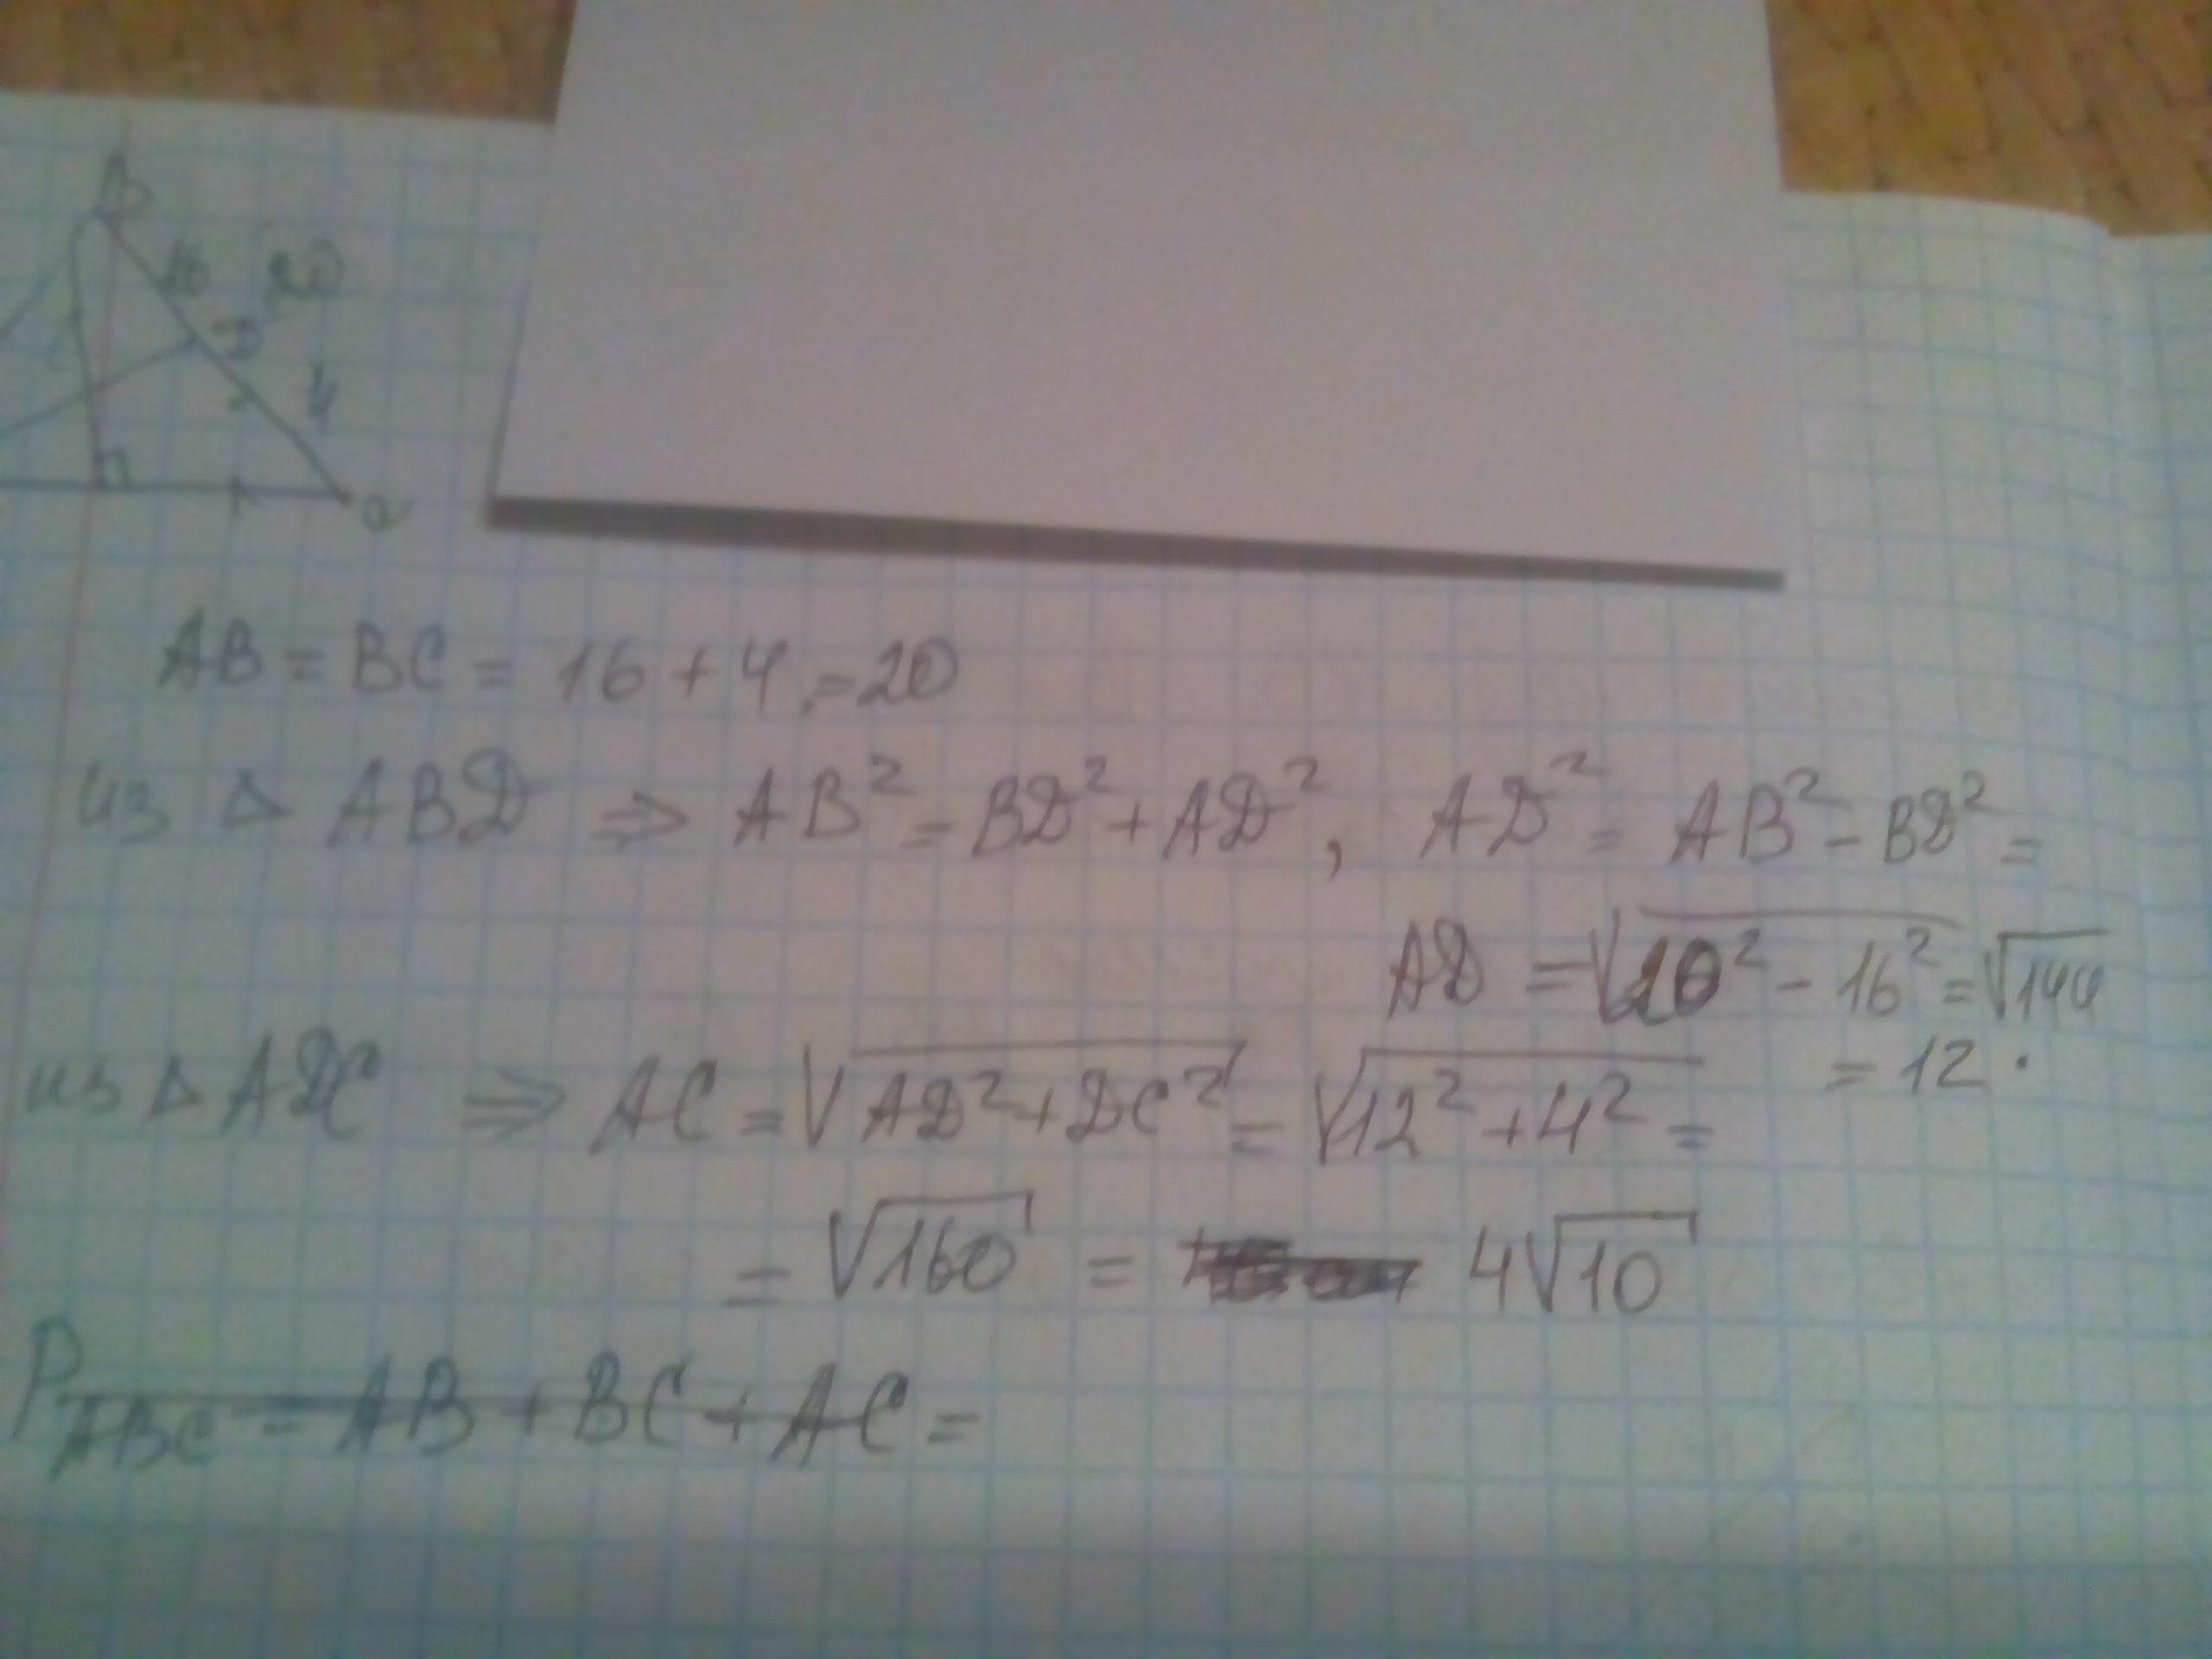 B
16 20
D
4
C
AB = BC = 16 + 4 = 20
из Δ ABD ⇒ AB² = BD² + AD², AD² = AB² - BD² =
AD = √20² - 16² = √144
= 12.
из Δ ADC ⇒ AC = √AD² + DC² = √12² + 4² =
= √160 = 4√10
P ABC = AB + BC + AC =